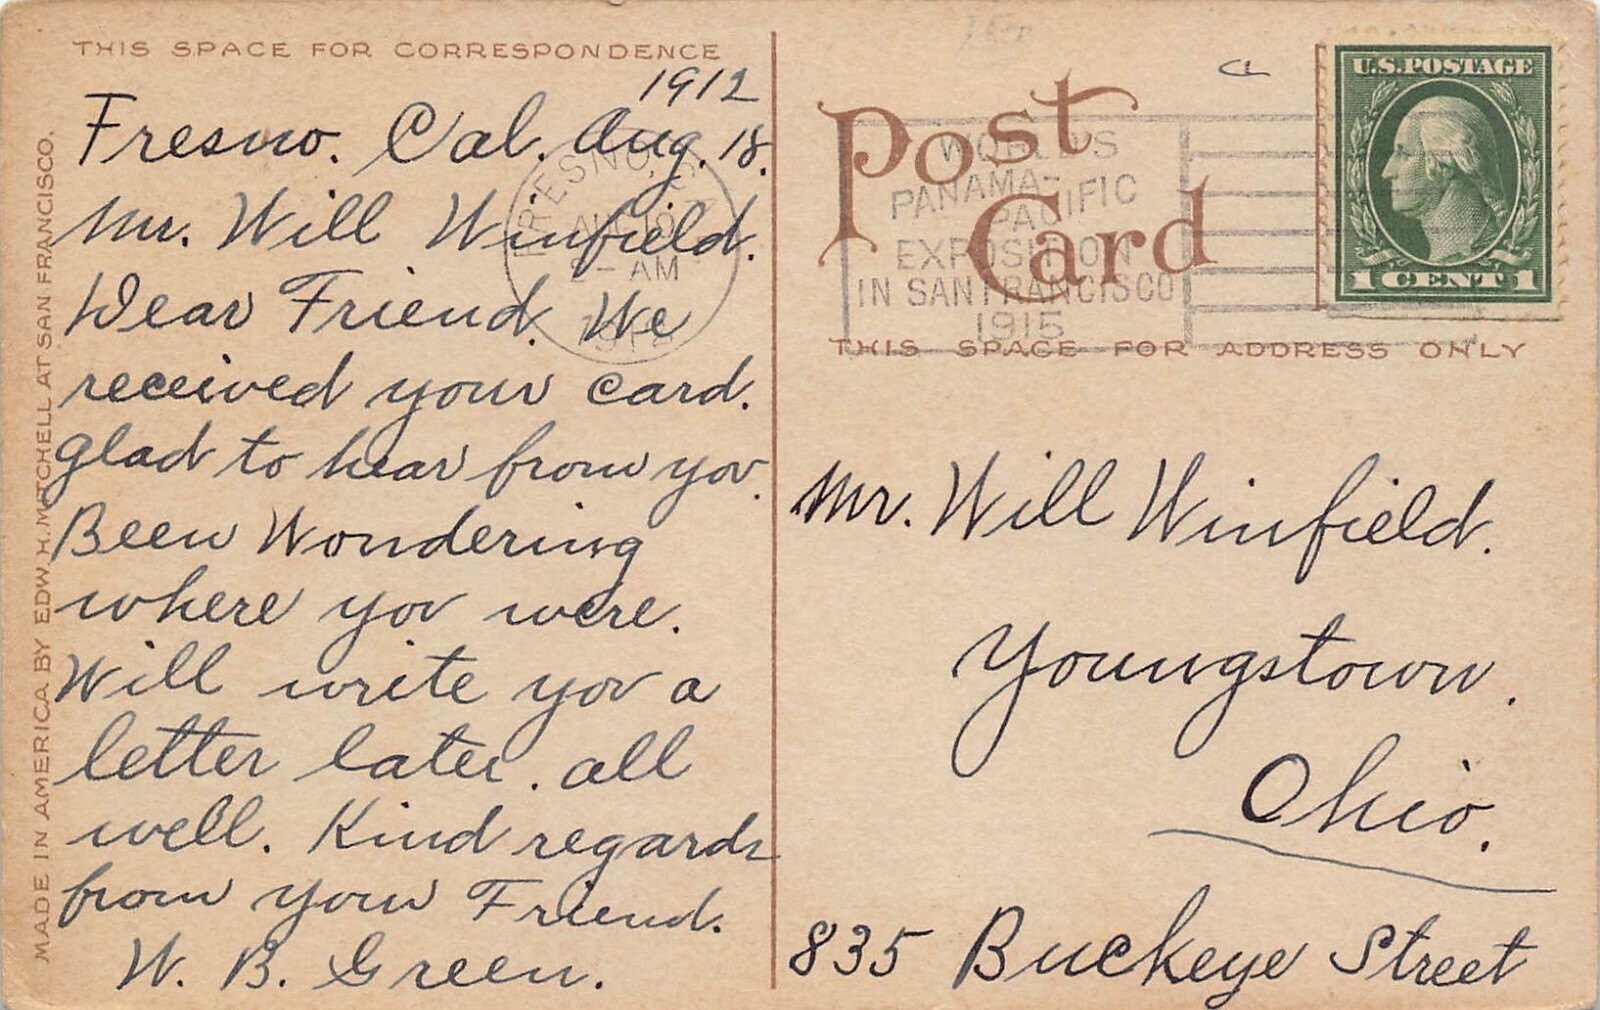 THIS SPACE FOR CORRESPONDENCE
1912
Fresno. Cal. Aug. 18.
Mr. Will Winfield.
Dear Friend. We
received your card.
glad to hear from you.
Been Wondering
where you were.
Will write you a
letter later. all
well. Kind regards
from your Friend.
W. B. Green.
MADE IN AMERICA BY EDW. H. MITCHELL AT SAN FRANCISCO.
FRESNO, 
AUG
2- AM
1912
Post
Card
WORLD'S
PANAMA-
PACIFIC
EXPOSITION
IN SAN FRANCISCO
1915
U.S. POSTAGE
1 CENT 1
THIS SPACE FOR ADDRESS ONLY
Mr. Will Winfield.
Youngstown.
Ohio.
835 Buckeye Street